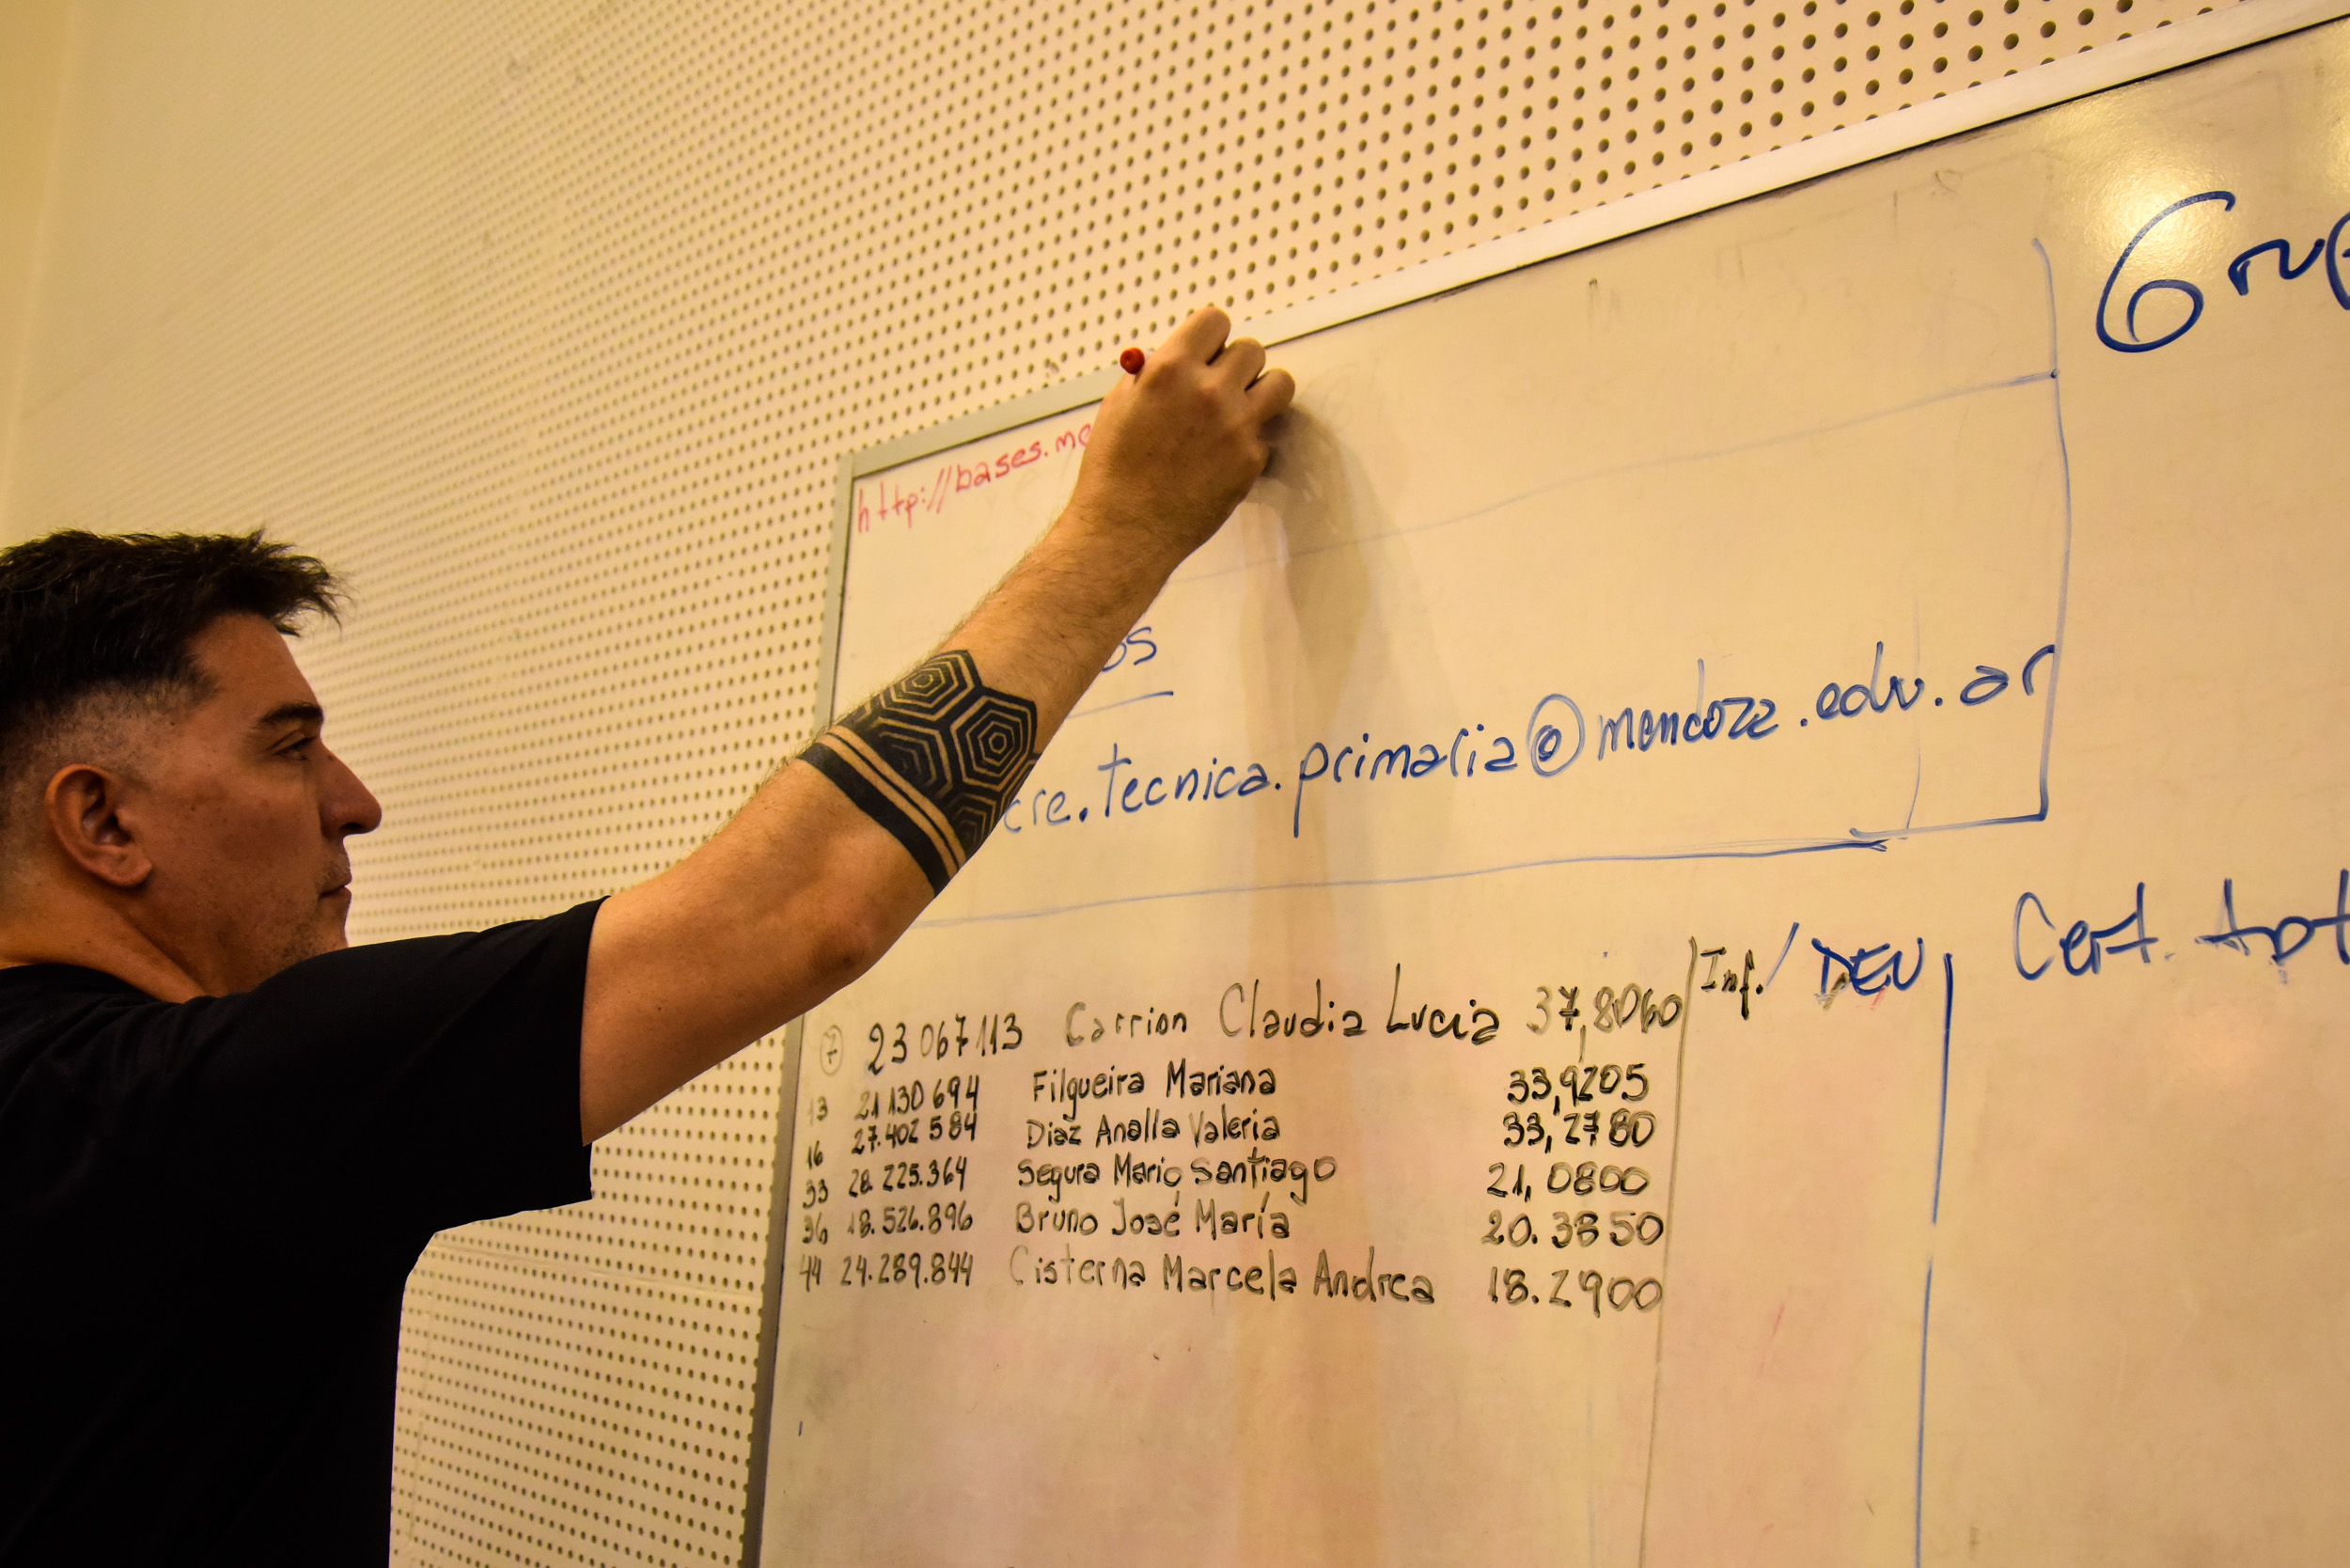 http://bases.me
Grup
os
cre.tecnica.primaria@mendoza.edu.ar
Inf./ DEV Cert. Apt
7 23067113 Carrion Claudia Lucia 37,8060
13 21130694 Filgueira Mariana 33,9205
16 27.402584 Diaz Analia Valeria 33,2780
33 28.225.364 Segura Mario Santiago 21,0800
36 18.526.896 Bruno José María 20.3850
44 24.289.844 Cisterna Marcela Andrea 18.2900